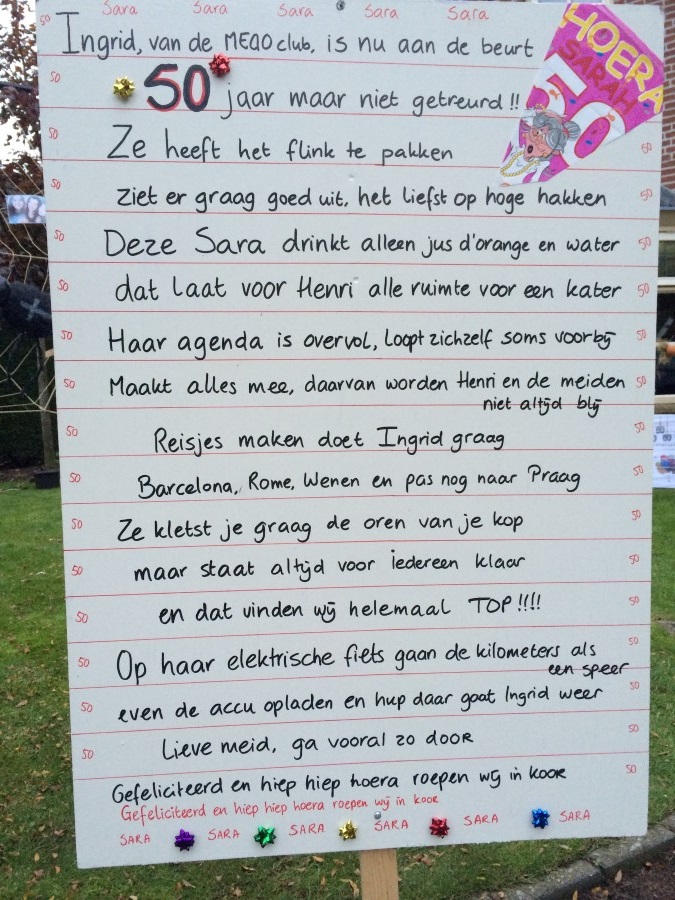 Sara Sara Sara Sara Sara
50 Ingrid, van de MEAO club, is nu aan de beurt
HOERA
SARAH
50
50 50 jaar maar niet getreurd !!
50 Ze heeft het flink te pakken 50
50 ziet er graag goed uit, het liefst op hoge hakken 50
50 Deze Sara drinkt alleen jus d'orange en water 50
50 dat laat voor Henri alle ruimte voor een kater 50
50 Haar agenda is overvol, loopt zichzelf soms voorbij 50
50 Maakt alles mee, daarvan worden Henri en de meiden 50
niet altijd blij
50 Reisjes maken doet Ingrid graag 50
50 Barcelona, Rome, Wenen en pas nog naar Praag 50
50 Ze kletst je graag de oren van je kop 50
50 maar staat altijd voor iedereen klaar 50
50 en dat vinden wij helemaal TOP!!!! 50
50 Op haar elektrische fiets gaan de kilometers als 50
een speer
50 even de accu opladen en hup daar gaat Ingrid weer 50
50 Lieve meid, ga vooral zo door 50
Gefeliciteerd en hiep hiep hoera roepen wij in koor 50
Gefeliciteerd en hiep hiep hoera roepen wij in koor
SARA SARA SARA SARA SARA SARA